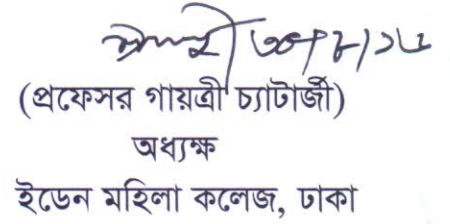 ৩০/৮/১৬
(প্রফেসর গায়ত্রী চ্যাটার্জী)
অধ্যক্ষ
ইডেন মহিলা কলেজ, ঢাকা